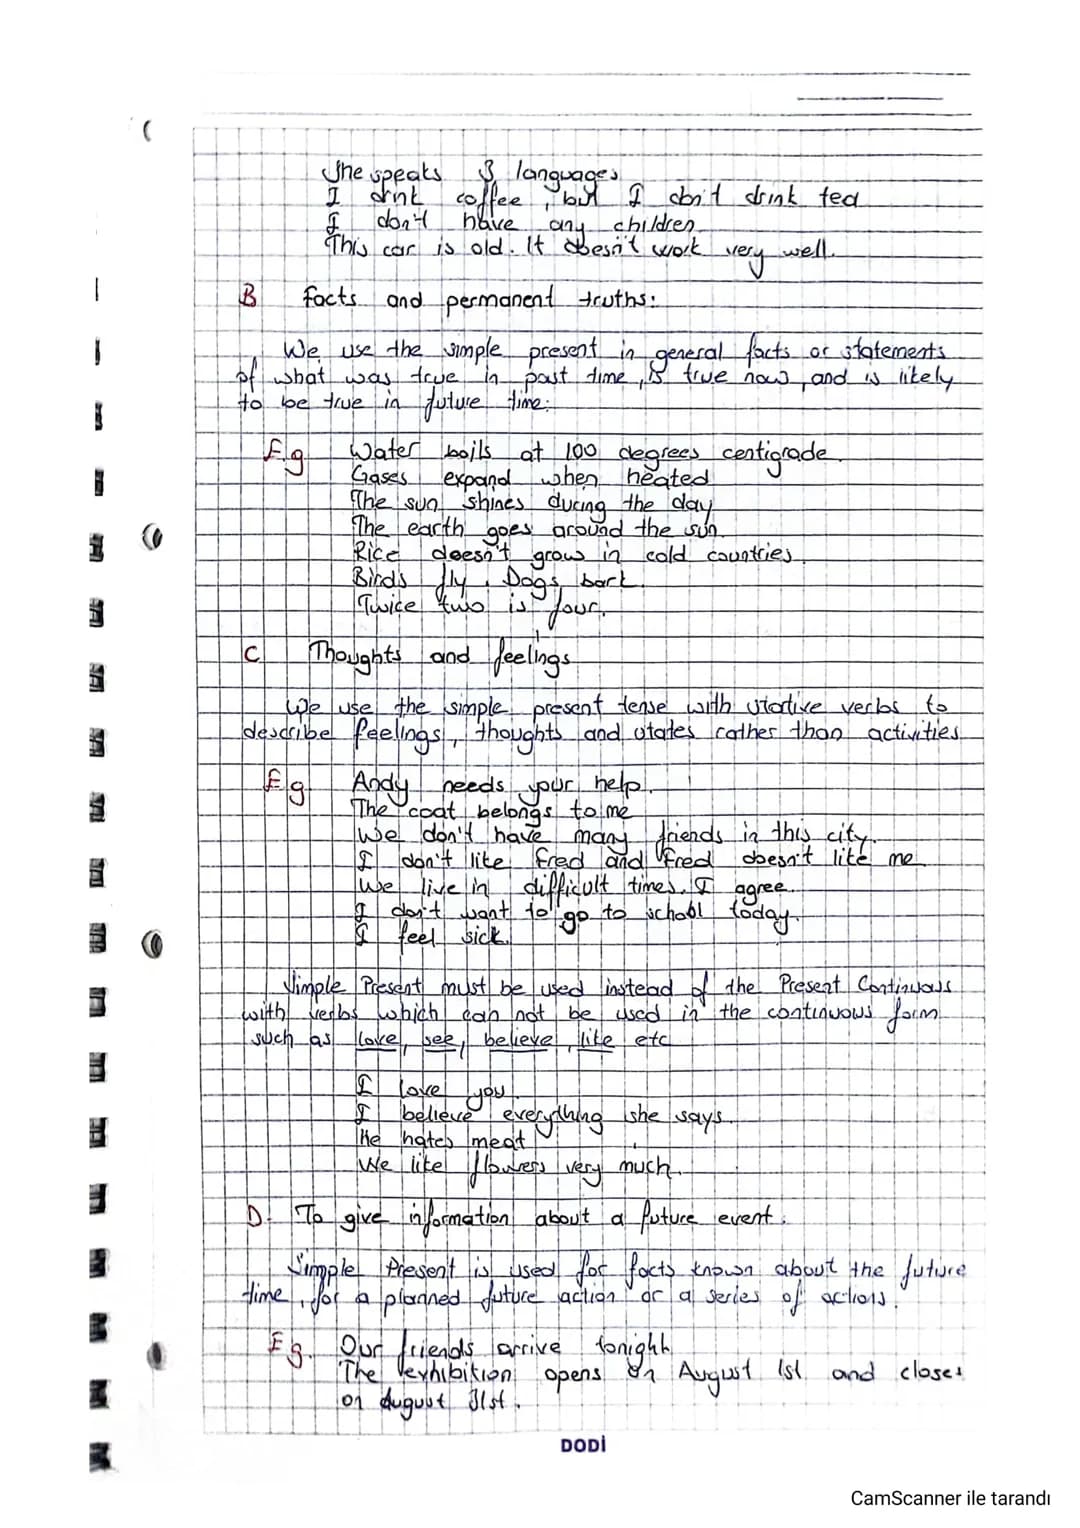 She speaks 3 languages
I drink coffee, but I don't drink tea
I don't have any children
This car is old. It doesn't work very well.
B Facts and permanent truths:
We use the simple present in general facts or statements
of what was true in past time, is true now, and is likely
to be true in future time:
E.g Water boils at 100 degrees centigrade.
Gases expand when heated
The sun shines during the day
The earth goes around the sun
Rice doesn't grow in cold countries
Birds fly. Dogs bark.
Twice two is four.
C Thoughts and feelings
We use the simple present tense with stative verbs to
describe feelings, thoughts and states rather than activities
Eg Andy needs your help.
The coat belongs to me
We don't have many friends in this city.
I don't like Fred and Fred doesn't like me
We live in difficult times. I agree.
I don't want to go to school today.
I feel sick.
Simple Present must be used instead of the Present Continuous
with verbs which can not be used in the continuous form
such as love, see, believe, like etc
I love you.
I believe everything she says.
He hates meat
We like flowers very much.
D. To give information about a future event.
Simple Present is used for facts known about the future
time, for a planned future action or a series of actions.
Eg. Our friends arrive tonight
The exhibition opens on August 1st and closes
on August 31st.
DODİ
CamScanner ile tarandı